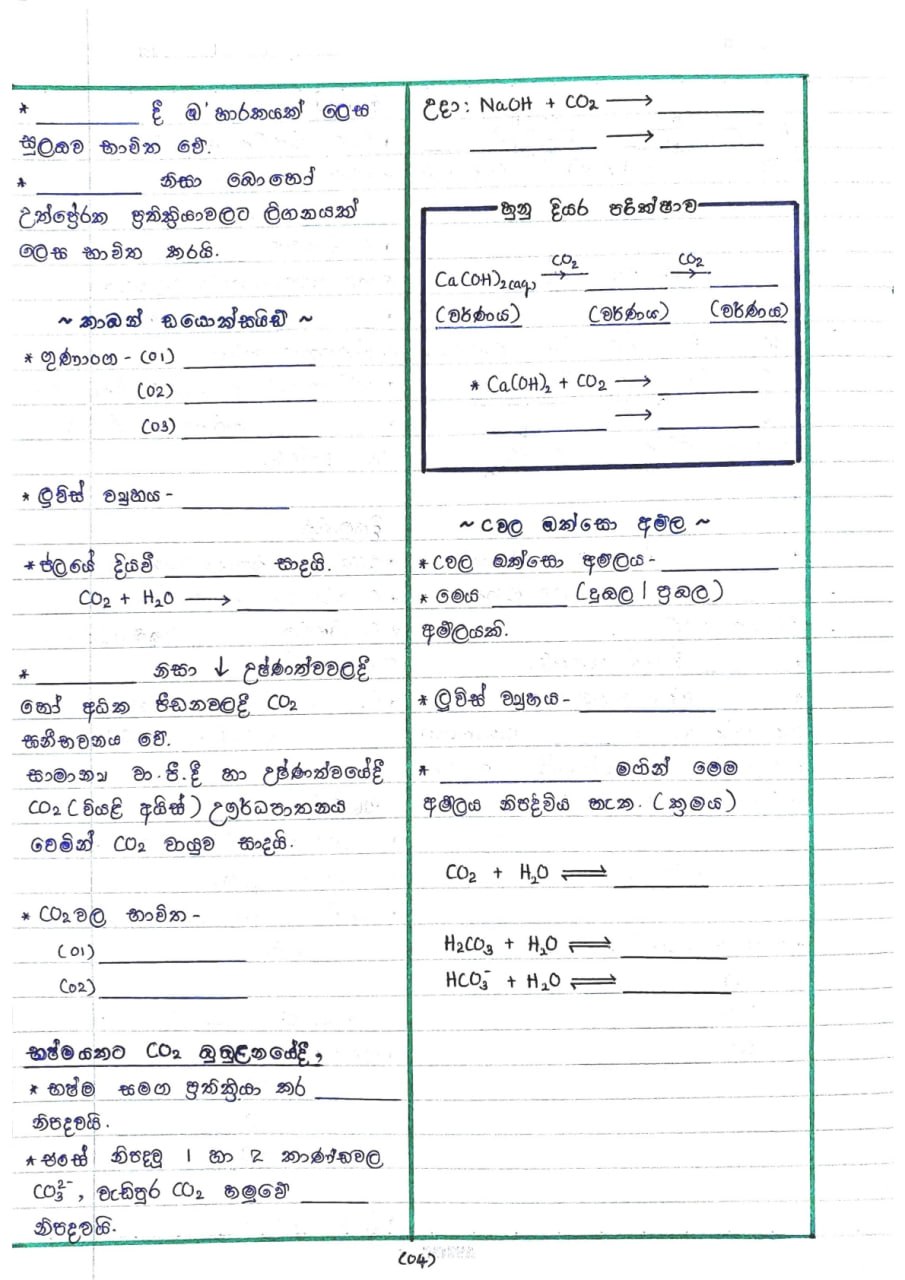 * __________ දී ඔ' හාරකයක් ලෙස
සුලභව භාවිත වේ.
* __________ නිසා බොහෝ
උත්ප්‍රේරක ප්‍රතික්‍රියාවලට ලිගනයක්
ලෙස භාවිත කරයි.
~ කාබන් ඩයොක්සයිඩ් ~
* ගුණාංග - (01) __________
(02) __________
(03) __________
* ලුවිස් ව්‍යුහය - __________
* ජලයේ දියවී __________ සාදයි.
CO₂ + H₂O ⟶ __________
* __________ නිසා ↓ උෂ්ණත්වවලදී
හෝ අධික පීඩනවලදී CO₂
ඝනීභවනය වේ.
සාමාන්‍ය වා.පී.දී හා උෂ්ණත්වයේදී
CO₂ (වියළි අයිස්) උර්ධපාතනය
වෙමින් CO₂ වායුව සාදයි.
* CO₂වල භාවිත -
(01) __________
(02) __________
භෂ්මයකට CO₂ බුබුළනයේදී,
* භෂ්ම සමග ප්‍රතික්‍රියා කර __________
නිපදවයි.
* එසේ නිපදවූ 1 හා 2 කාණ්ඩවල
CO₃²⁻, වැඩිපුර CO₂ හමුවේ __________
නිපදවයි.
උදා: NaOH + CO₂ ⟶ __________
__________ ⟶ __________
හුනු දියර පරීක්ෂාව
Ca(OH)₂(aq) CO₂⟶ __________ CO₂⟶ __________
(වර්ණය) (වර්ණය) (වර්ණය)
* Ca(OH)₂ + CO₂ ⟶ __________
__________ ⟶ __________
~ Cවල ඔක්සො අම්ල ~
* Cවල ඔක්සො අම්ලය- __________
* මෙය __________ (දුබල / ප්‍රබල)
අම්ලයකි.
* ලුවිස් ව්‍යුහය- __________
* __________ මගින් මෙම
අම්ලය නිපද්විය හැක. (ක්‍රමය)
CO₂ + H₂O ⇌ __________
H₂CO₃ + H₂O ⇌ __________
HCO₃⁻ + H₂O ⇌ __________
(04)